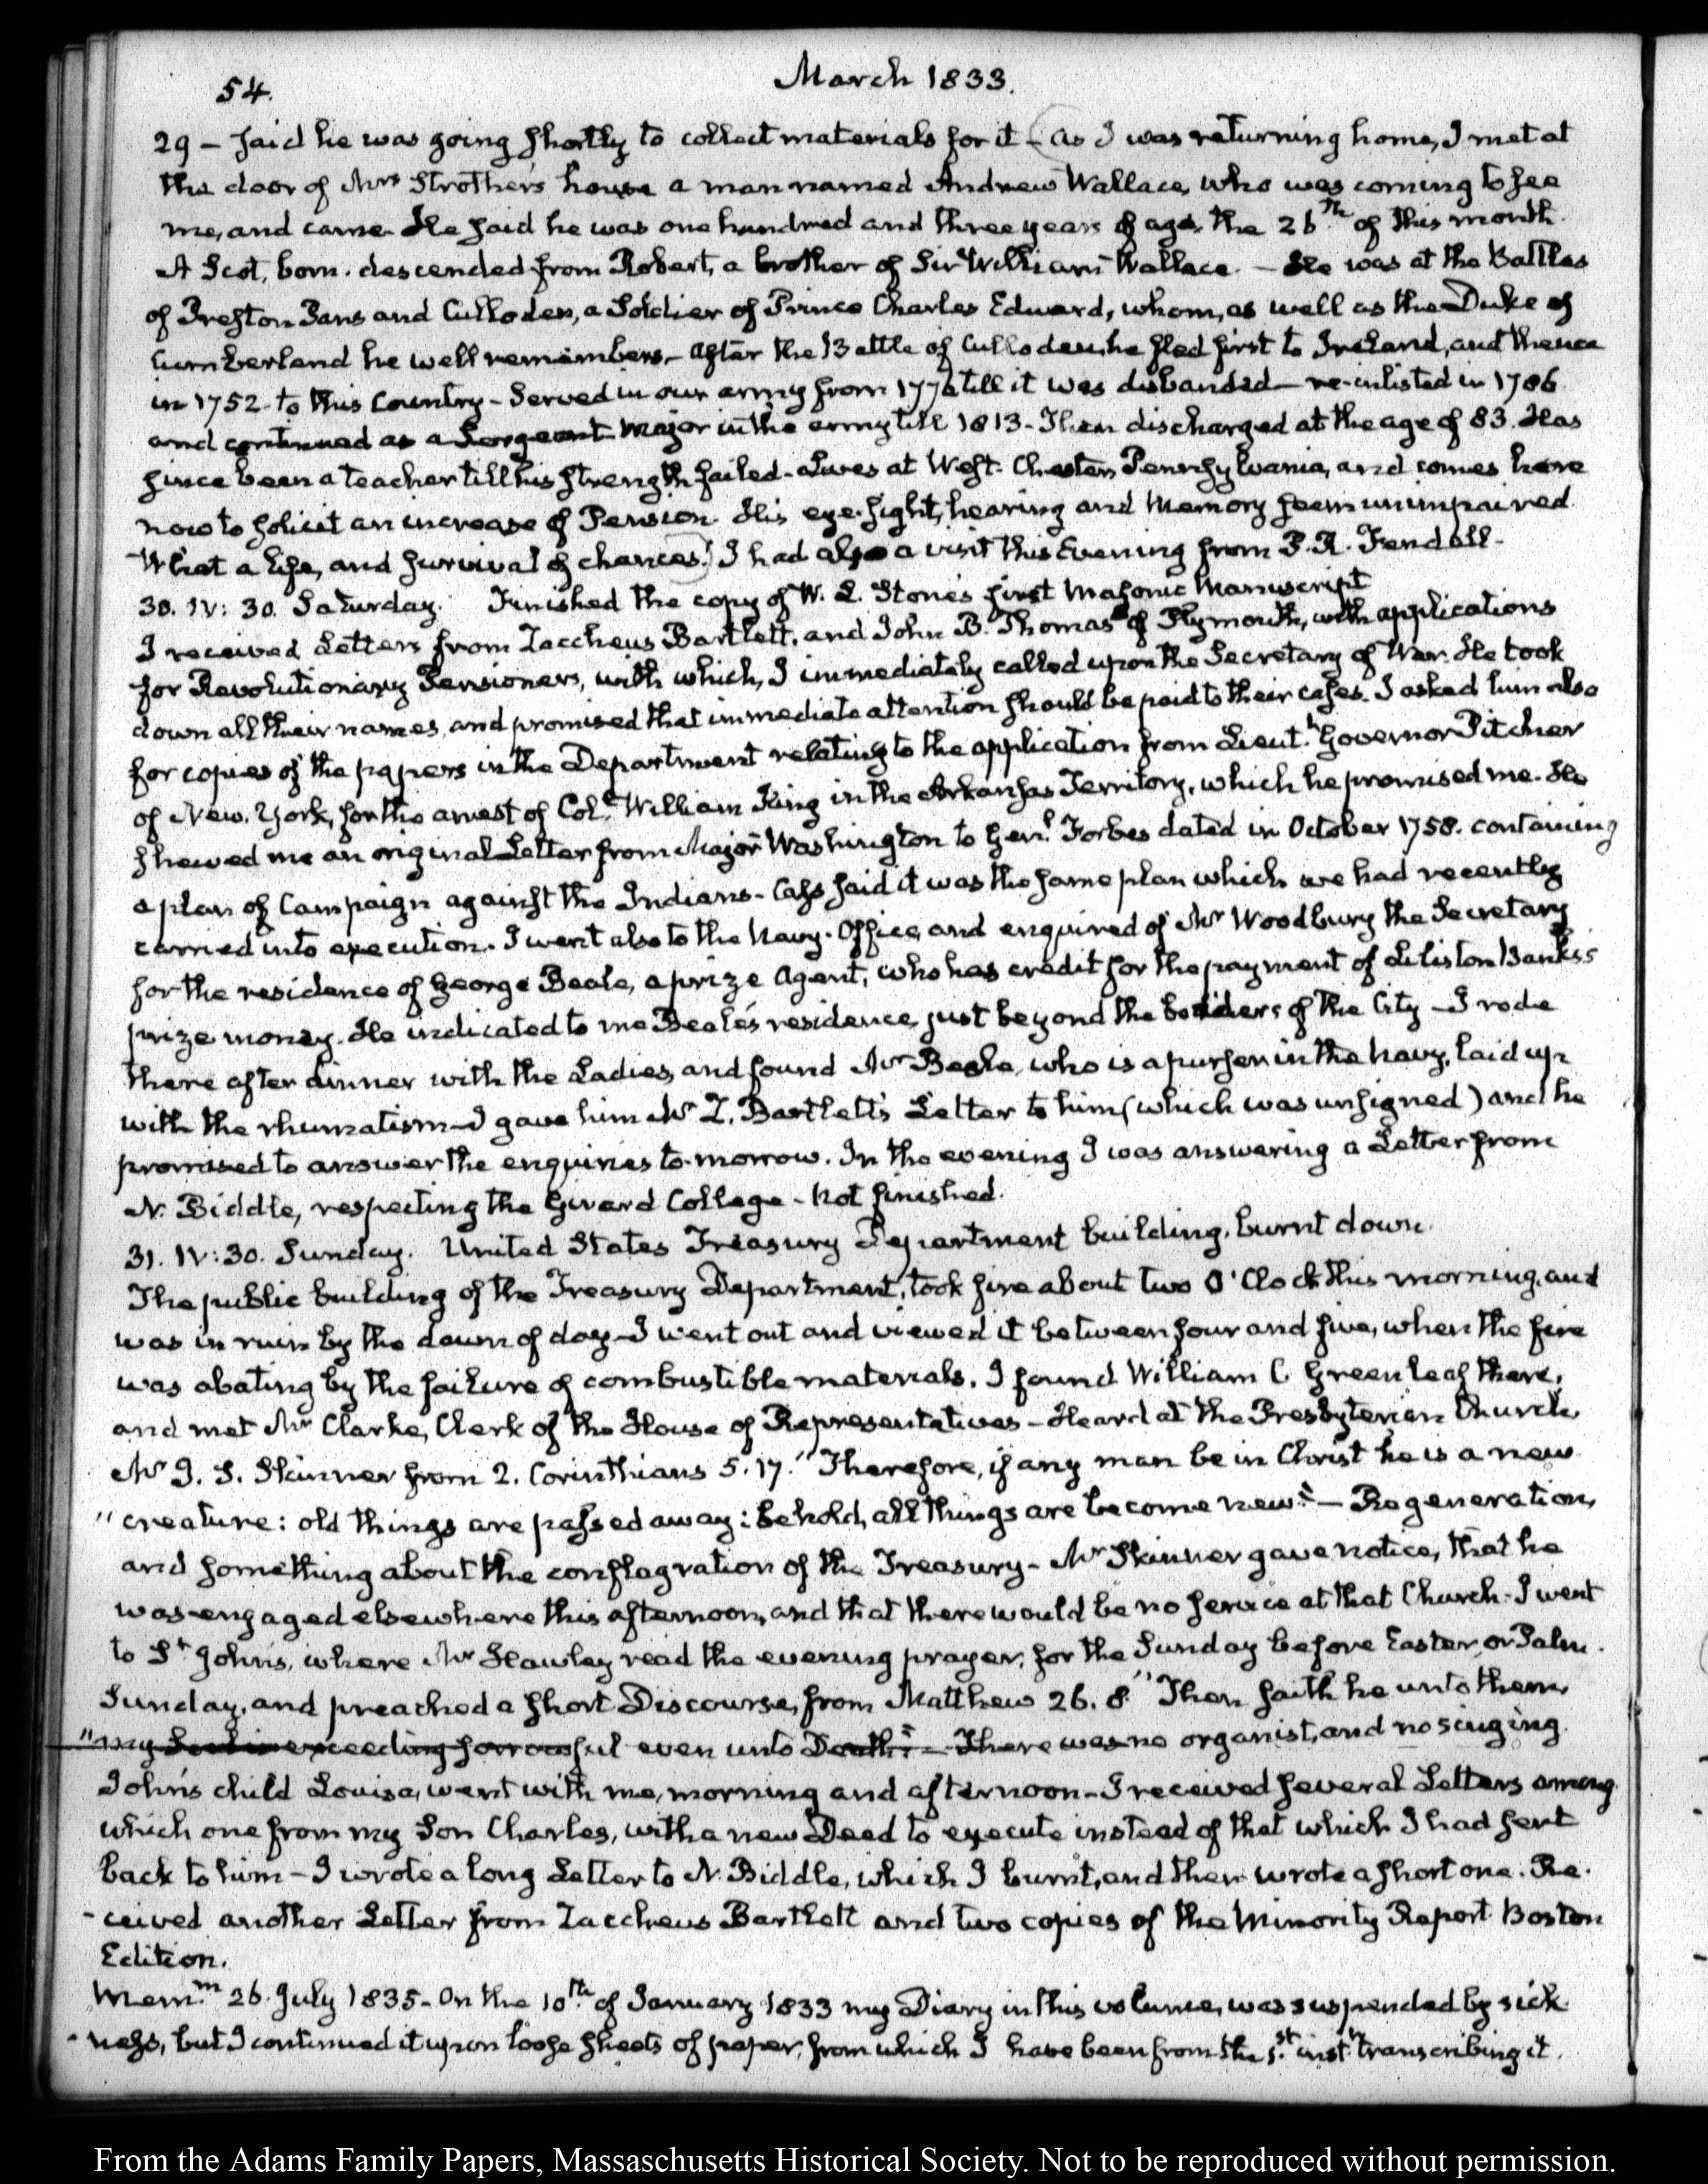 54.
March 1833.
29 — said he was going shortly to collect materials for it — (As I was returning home, I met at
the door of Mrs Strother's house a man named Andrew Wallace, who was coming to see
me, and came. He said he was one hundred and three years of age, the 26th of this month.
A Scot, born. descended from Robert, a brother of Sir William Wallace. — He was at the Battles
of Preston Pans and Culloden, a Soldier of Prince Charles Edward, whom, as well as the Duke of
Cumberland he well remembers — After the Battle of Culloden, he fled first to Ireland, and thence
in 1752. to this Country — Served in our army from 1776 till it was disbanded — re-inlisted in 1786
and continued as a Sergeant Major in the army till 1813 — Then discharged at the age of 83. Has
since been a teacher till his strength failed — Lives at West-Chester, Pennsylvania, and comes here
now to solicit an increase of Pension. His eye-sight, hearing and Memory seem unimpaired.
What a life, and survival of chances!) I had also a visit this Evening from P. R. Fendall.
30. IV: 30. Saturday. Finished the copy of W. L. Stone's first Masonic Manuscript
I received Letters from Zaccheus Bartlett, and John B. Thomas of Plymouth, with applications
for Revolutionary Pensioners, with which, I immediately called upon the Secretary of War. He took
down all their names, and promised that immediate attention should be paid to their cases. I asked him also
for copies of the papers in the Department relating to the application from Lieutt Governor Pitcher
of New-York, for the arrest of Coll William King in the Arkansas Territory, which he promised me. He
shewed me an original Letter from Major Washington to Genl Forbes dated in October 1758. containing
a plan of Campaign against the Indians — Cass said it was the same plan which we had recently
carried into execution. I went also to the Navy-Office, and enquired of Mr Woodbury the Secretary
for the residence of George Beale, a prize Agent, who has credit for the payment of Liliston Banks's
prize money. He indicated to me Beale's residence, just beyond the borders of the City — I rode
there after dinner with the Ladies, and found Mr Beale, who is a purser in the Navy, laid up
with the rhumatism — I gave him Mr Z. Bartlett's Letter to him (which was unsigned) and he
promised to answer the enquiries to-morrow. In the evening I was answering a Letter from
N. Biddle, respecting the Girard College — Not finished.
31. IV: 30. Sunday. United States Treasury Department building, burnt down.
The public building of the Treasury Department, took fire about two O'Clock this morning, and
was in ruin by the dawn of day — I went out and viewed it between four and five, when the fire
was abating by the failure of combustible materials. I found William C. Greenleaf there,
and met Mr Clarke, Clerk of the House of Representatives — Heard at the Presbyterian Church,
Mr I. S. Skinner from 2. Corinthians 5. 17. "Therefore, if any man be in Christ he is a new
"creature: old things are passed away: behold, all things are become new." — Regeneration,
and something about the conflagration of the Treasury — Mr Skinner gave notice, that he
was engaged elsewhere this afternoon, and that there would be no service at that Church — I went
to St John's, where Mr Hawley read the evening prayer, for the Sunday before Easter, or Palm
Sunday, and preached a short Discourse, from Matthew 26. 8. "Then saith he unto them,
"my Soul is exceeding sorrowful even unto Death." — There was no organist, and no singing.
John's child Louisa, went with me, morning and afternoon — I received several Letters among
which one from my Son Charles, with a new Deed to execute instead of that which I had sent
back to him — I wrote a long Letter to N. Biddle, which I burnt, and then wrote a short one. Re-
-ceived another Letter from Zaccheus Bartlett and two copies of the Minority Report. Boston
Edition.
Memm 26. July 1835 — On the 10th of January 1833 my Diary in this volume, was suspended by sick-
-ness, but I continued it upon loose sheets of paper, from which I have been from the 1st instt transcribing it.
From the Adams Family Papers, Massachusetts Historical Society. Not to be reproduced without permission.